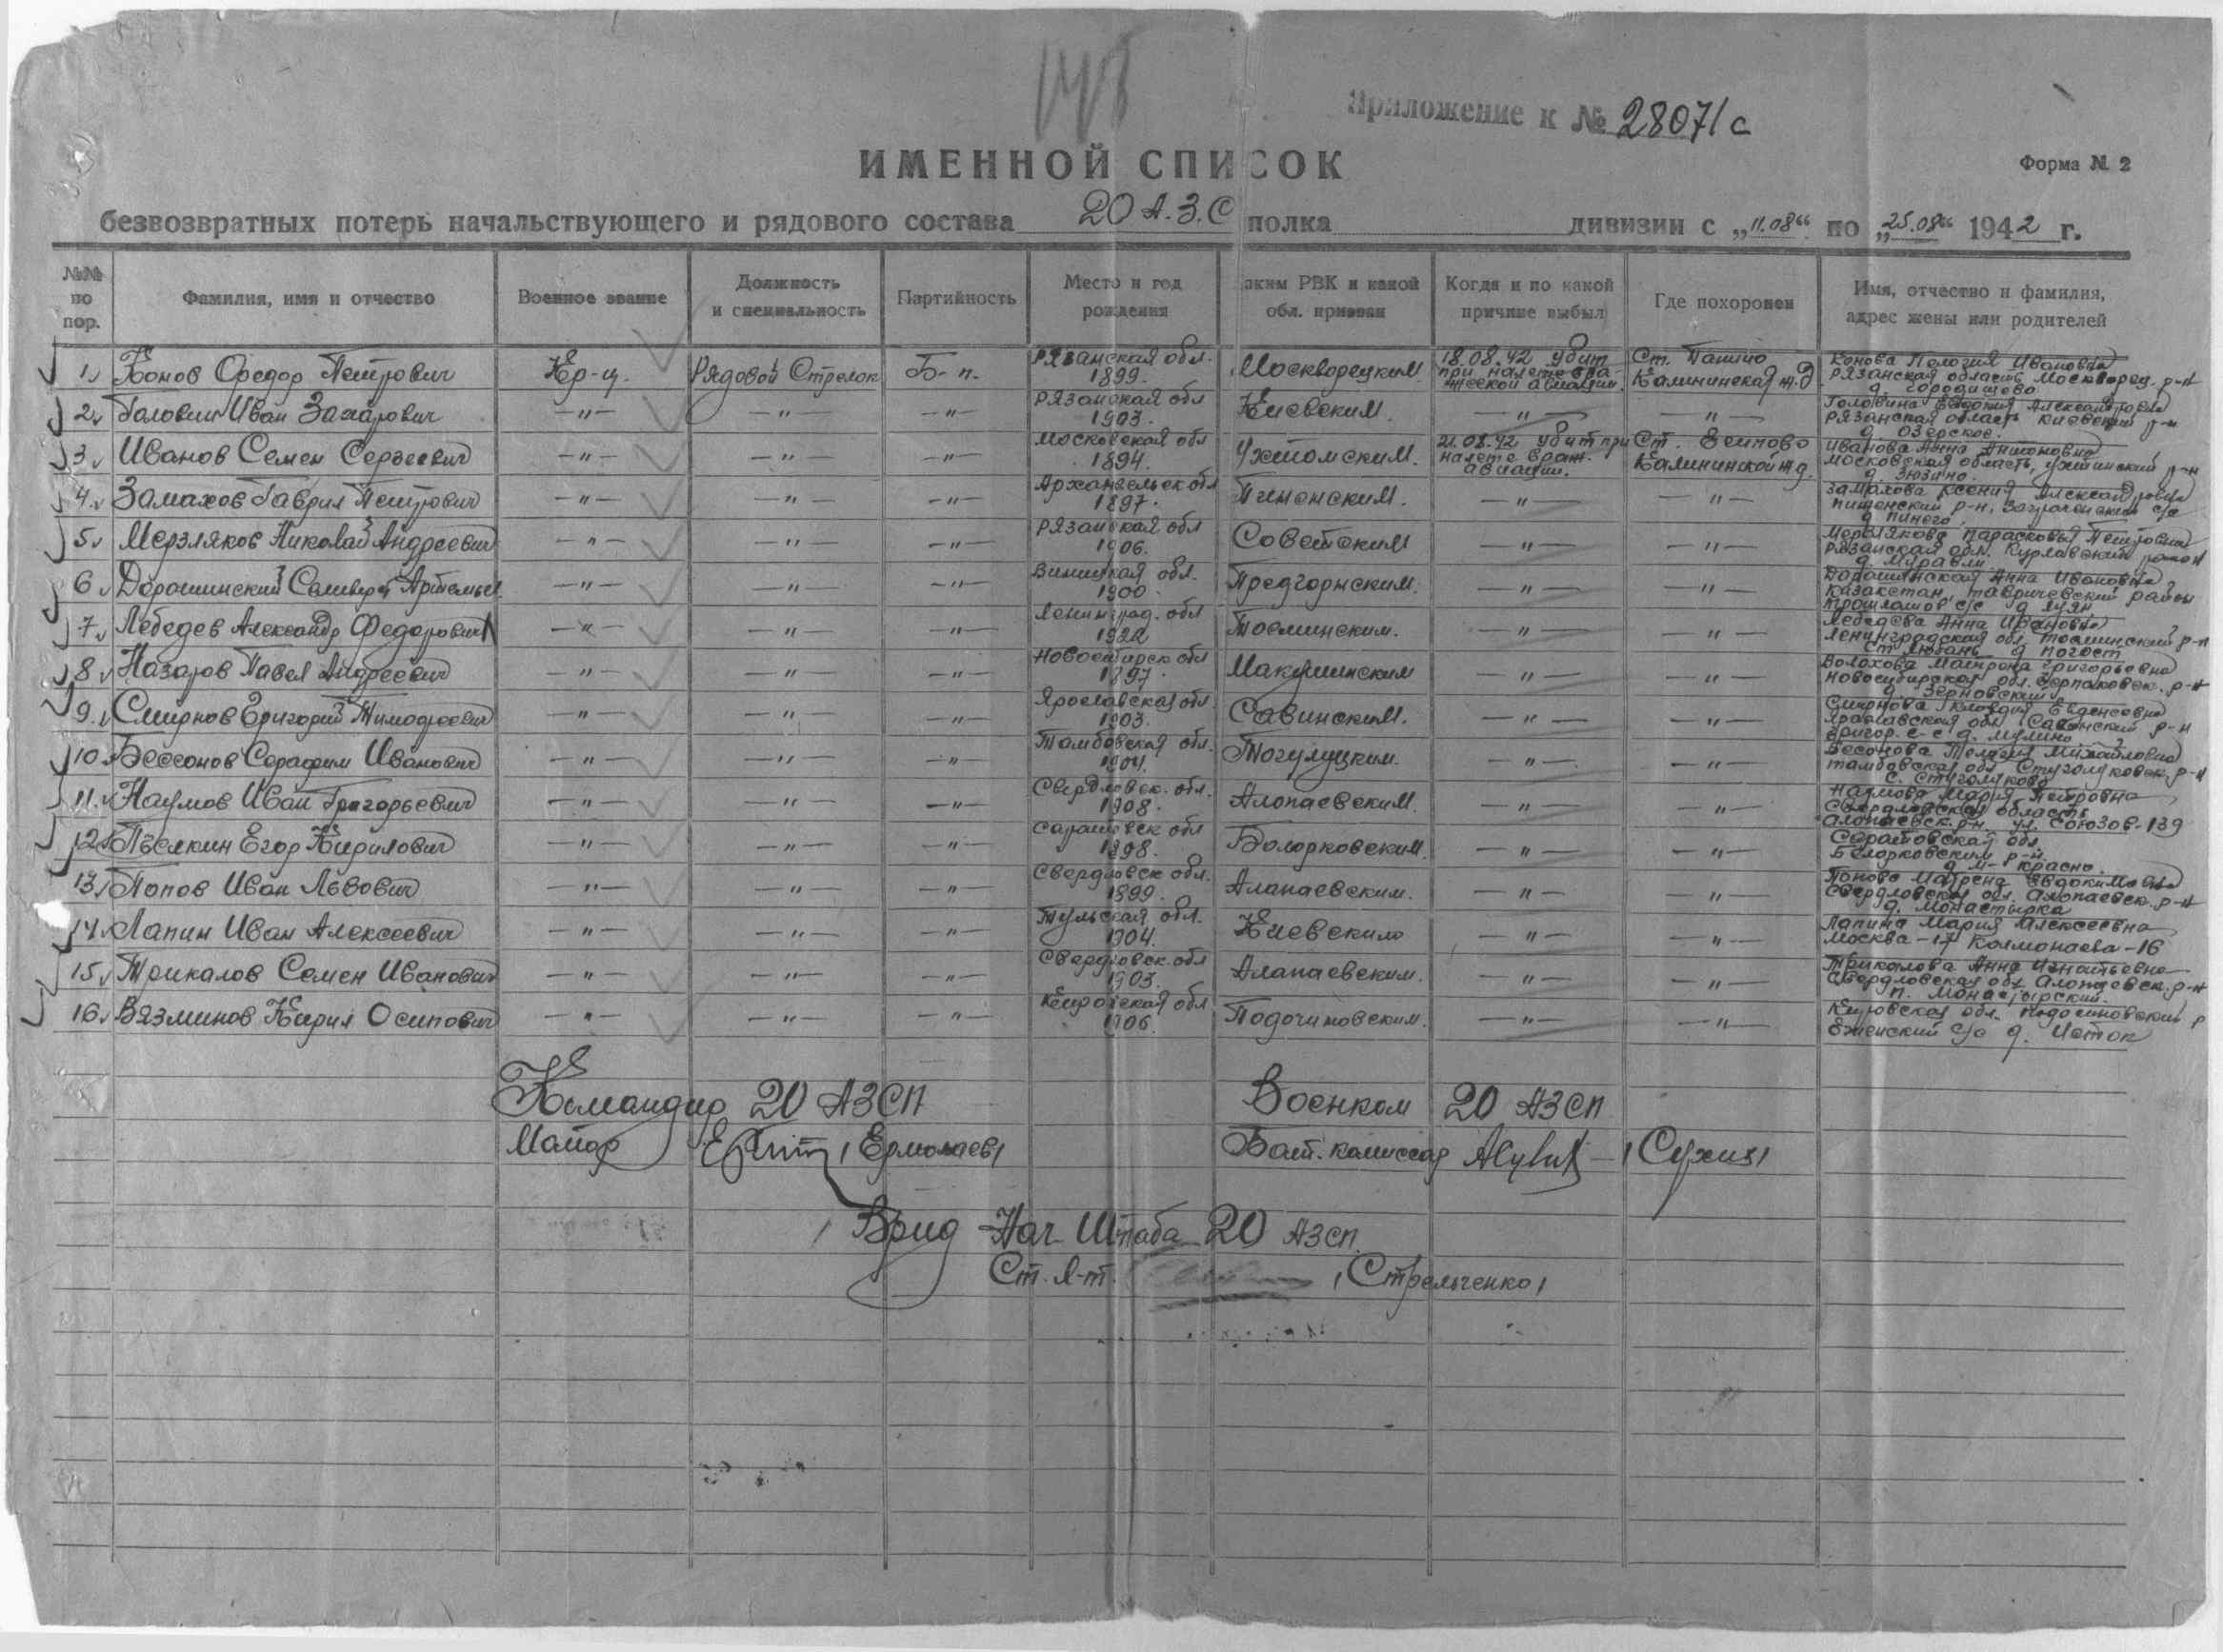 148
Приложение к № 28071с
ИМЕННОЙ СПИСОК
Форма № 2
безвозвратных потерь начальствующего и рядового состава 20 А.З.С полка дивизии с „11.08“ по „25.08“ 1942 г.
№№ по пор. Фамилия, имя и отчество Военное звание Должность и специальность Партийность Место и год рождения аким РВК и какой обл. призван Когда и по какой причине выбыл Где похоронен Имя, отчество и фамилия, адрес жены или родителей
1 Конов Федор Петрович Кр-ц. Рядовой Стрелок Б-п. Рязанская обл. 1899. Москворецким 18.08.42 убит при налете вражеской авиации. Ст. Пашино Калининская ж.д Конова Пелогия Ивановна Рязанская область Москворец. р-н д. Городищево
2 Головин Иван Захарович -"- -"- -"- Рязанская обл 1903. Киевским. -"- -"- Головина Евдокия Александровна Рязанская область Киевский р-н д. Озерское.
3 Иванов Семен Сергеевич -"- -"- -"- Московская обл 1894. Ухтомским. 21.08.42 убит при налете враж. авиации. Ст. Калининской ж.д. Иванова Анна Московская область, р-н д. Зюзино.
4. Замахов Гаврил Петрович -"- -"- -"- Архангельск обл 1897. Пиненским. -"- -"- Ксения Александровна р-н, с/с д Пинего
5 Мерзляков Николай Андреевич -"- -"- -"- Рязанская обл 1906. Советским -"- -"- Парасковья Петровна Рязанская обл. район д. Муравли
6 Дорошинский Селиверст Артемьев. -"- -"- -"- Виницкая обл. 1900 Предгорнским. -"- -"- Дорошинская Анна Ивановна Казахстан, Тавричевский район с/с д
7. Лебедев Александр Федорович -"- -"- -"- Ленинград. обл 1922 Тосминским. -"- -"- Лебедева Анна Ивановна Ленинградская обл, Тосминский р-н ст Любань д погост
8 Назаров Павел Андреевич -"- -"- -"- Новосибирск обл 1897. Макушинским -"- -"- Волохова Матрона Григорьевна Новосибирская обл. р-н д. Зерновский
9. Смирнов Григорий Тимофеевич -"- -"- -"- Ярославская обл. 1903. Савинским. -"- -"- Смирнова Клавдия Евгеневна Яраславская обл Савинский р-н Григор. с-с д. Мулино
10 Бессонов Серафим Иванович -"- -"- -"- Тамбовская обл. 1904. Тогулуцким. -"- -"- Бесонова Пелагея Михайловна Тамбовская обл Стуголуковск. р-н с. Стуголуково
11. Наумов Иван Григорьевич -"- -"- -"- Свердловск. обл. 1908. Алопаевским. -"- -"- Наумова Мария Петровна Свердловская область Алопаевск. р-н. ул. Союзов-139
12 Пчелкин Егор Кирилович -"- -"- -"- Саратовск обл 1898. Болорковским. -"- -"- Саратовская обл. Белорковским р-н. д м-Красно.
13 Попов Иван Львович -"- -"- -"- Свердловск обл. 1899. Алапаевским. -"- -"- Попова Матрена Евдокимовна Свердловская обл. Алопаевск. р-н д. Монастырка
14 Лапин Иван Алексеевич -"- -"- -"- Тульская обл. 1904. Киевским -"- -"- Лапина Мария Алексеевна Москва-17 Колмонаева-16
15 Трикалов Семен Иванович -"- -"- -"- Свердловск. обл 1903. Алапаевским. -"- -"- Трикалова Анна Игнатьевна Свердловская обл Алопаевск. р-н п. Монастырский.
16 Вязминов Кирил Осипович -"- -"- -"- Кировская обл 1906. Подочиновским. -"- -"- Кировская обл. Подосиновский р Еженский с/с д. Исток
Командир 20 АЗСП Военком 20 АЗСП
Майор /Ермолаев/ Бат. комиссар /Сухих/
Врид Нач Штаба 20 АЗСП.
Ст. л-т. /Стрельченко/